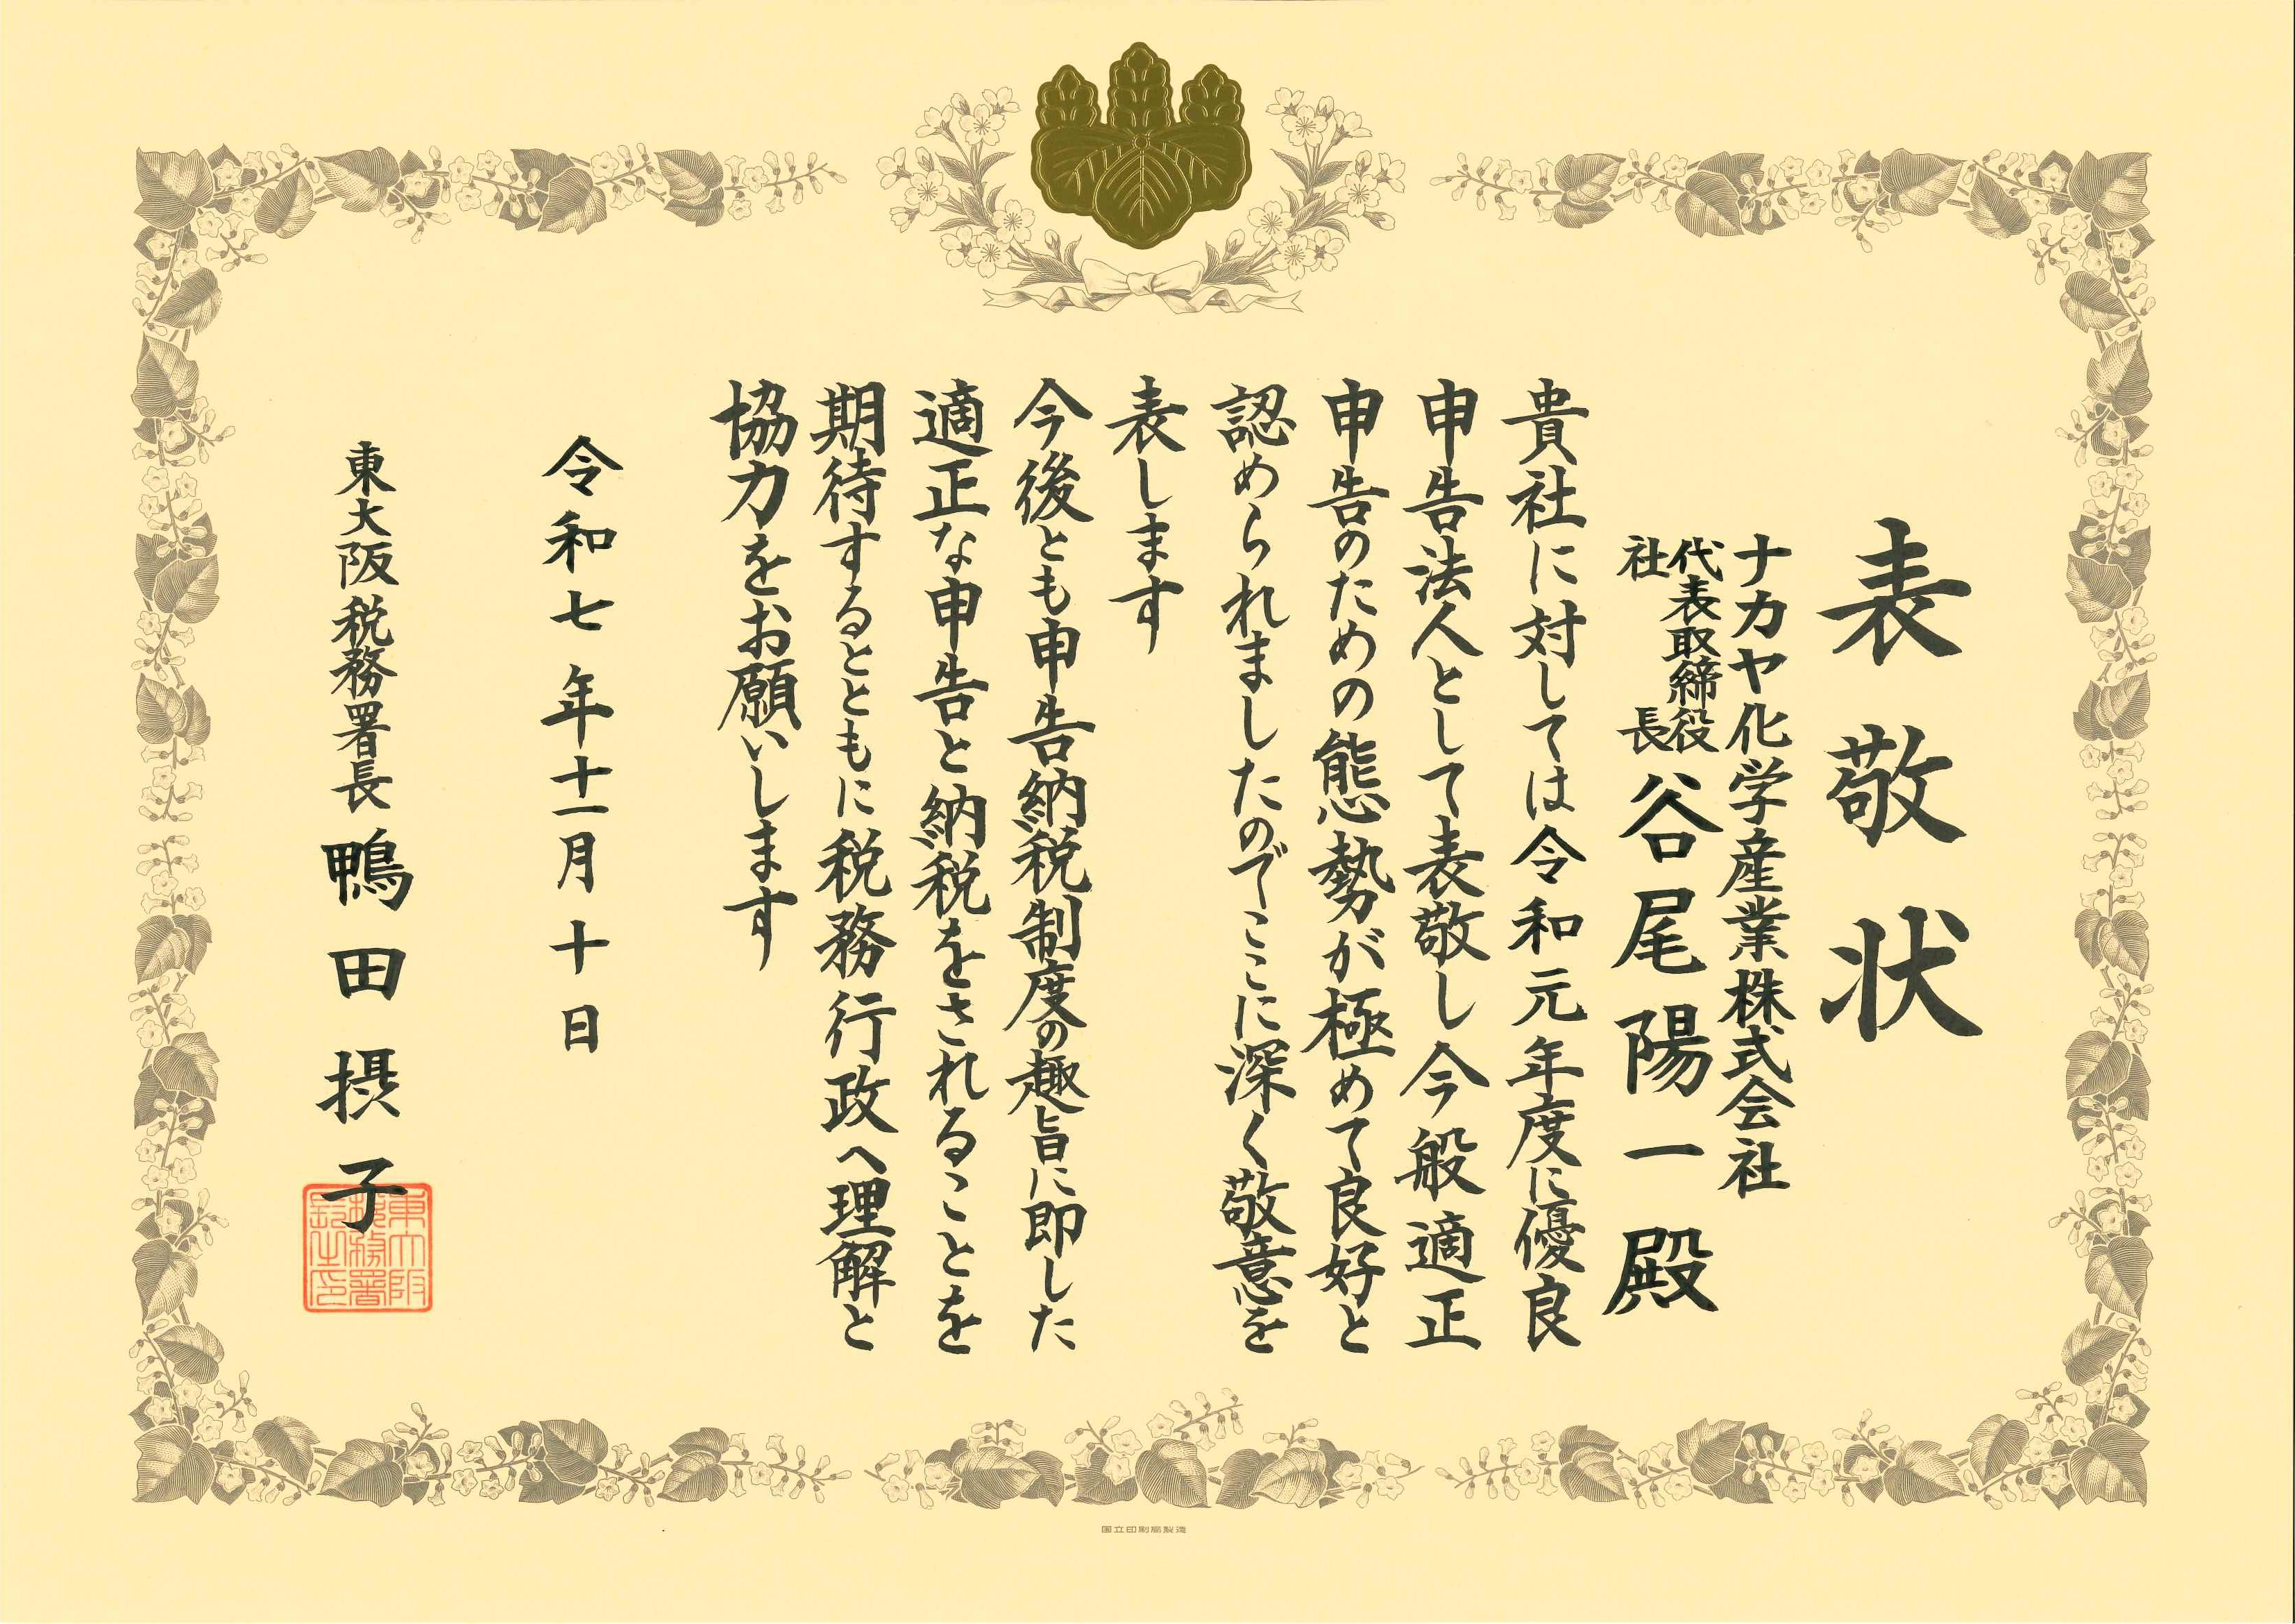 表敬状
ナカヤ化学産業株式会社
代表取締役
社長
谷尾陽一殿
貴社に対しては令和元年度に優良
申告法人として表敬し今般適正
申告のための態勢が極めて良好と
認められましたのでここに深く敬意を
表します
今後とも申告納税制度の趣旨に即した
適正な申告と納税をされることを
期待するとともに税務行政へ理解と
協力をお願いします
令和七年十一月十日
東大阪税務署長
鴨田摂子
東大阪
税務署
長之印
国立印刷局製造